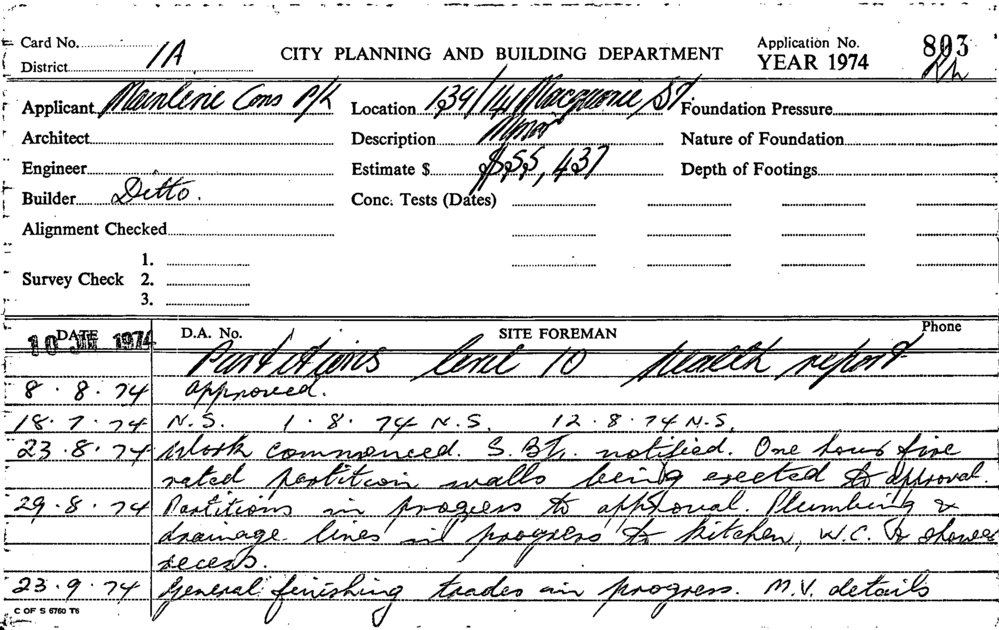 Card No. Application No. 803
District 1A CITY PLANNING AND BUILDING DEPARTMENT YEAR 1974
Applicant Mainline Cons P/L Location 139/141 Macquarie St Foundation Pressure
Architect Description Minor Nature of Foundation
Engineer Estimate $ $55,437 Depth of Footings
Builder Ditto. Conc. Tests (Dates)
Alignment Checked
1.
Survey Check 2.
3.
DATE D.A. No. SITE FOREMAN Phone
10 1974
Partitions level 10 health report
8.8.74 approved.
18.7.74 N.S. 1.8.74 N.S. 12.8.74 N.S.
23.8.74 Work commenced. S. Bd. notified. One hour fire
rated partition walls being erected to approval.
29.8.74 Partitions in progress to approval. Plumbing &
drainage lines in progress to kitchen, W.C. & shower
recess.
23.9.74 General finishing trades in progress. M.V. details
C OF S 6760 T6